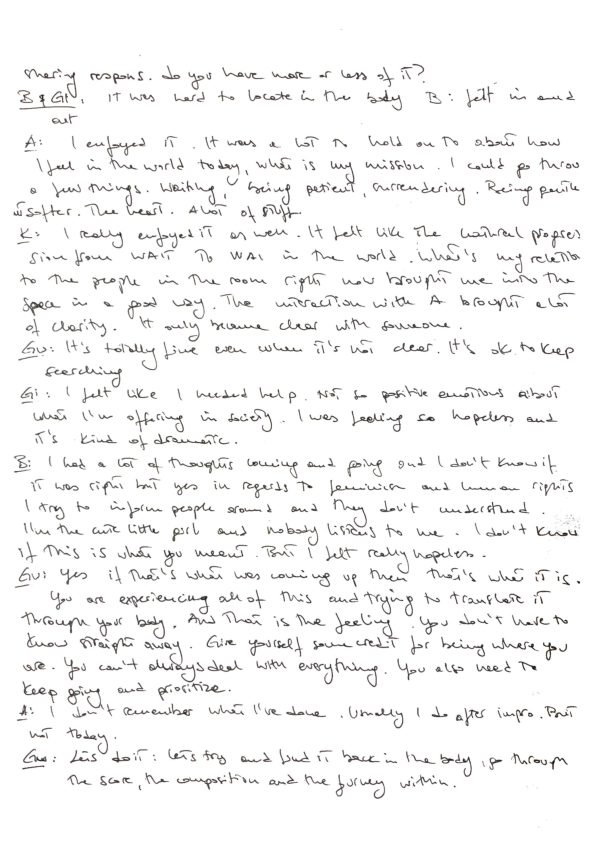 sharing respons. do you have more or less of it?
B & Gi: It was hard to locate in the body B: felt in and
out
A: I enjoyed it. It was a lot to hold on to about how
I feel in the world today, what is my mission. I could go throu
a few things. Waiting, being patient, surrendering. Being gentle
softer. The heart. A lot of stuff.
K: I really enjoyed it as well. It felt like the natural progres
sion from WAIT to WAI in the world. What's my relatio
to the people in the room right now brought me into the
space in a good way. The interaction with A brought a lot
of clarity. It only became clear with someone.
Gu: It's totally fine even when it's not clear. It's ok to keep
searching
Gi: I felt like I needed help. Not so positive emotions about
what I'm offering in society. I was feeling so hopeless and
it's kind of dramatic.
B: I had a lot of thoughts coming and going and I don't know if
it was right but yes in regards to feminism and human rights
I try to inform people around and they don't understand.
I'm the cute little girl and nobody listens to me. I don't know
if this is what you meant. But I felt really hopeless.
Gu: Yes if that's what was coming up then that's what it is.
You are experiencing all of this and trying to translate it
through your body. And that is the feeling. You don't have to
know straight away. Give yourself some credit for being where you
are. You can't always deal with everything. You also need to
keep going and prioritize.
A: I don't remember what I've done. Usually I do after impro. But
not today.
Let's do it: let's try and find it back in the body, go through
the score, the composition and the journey within.